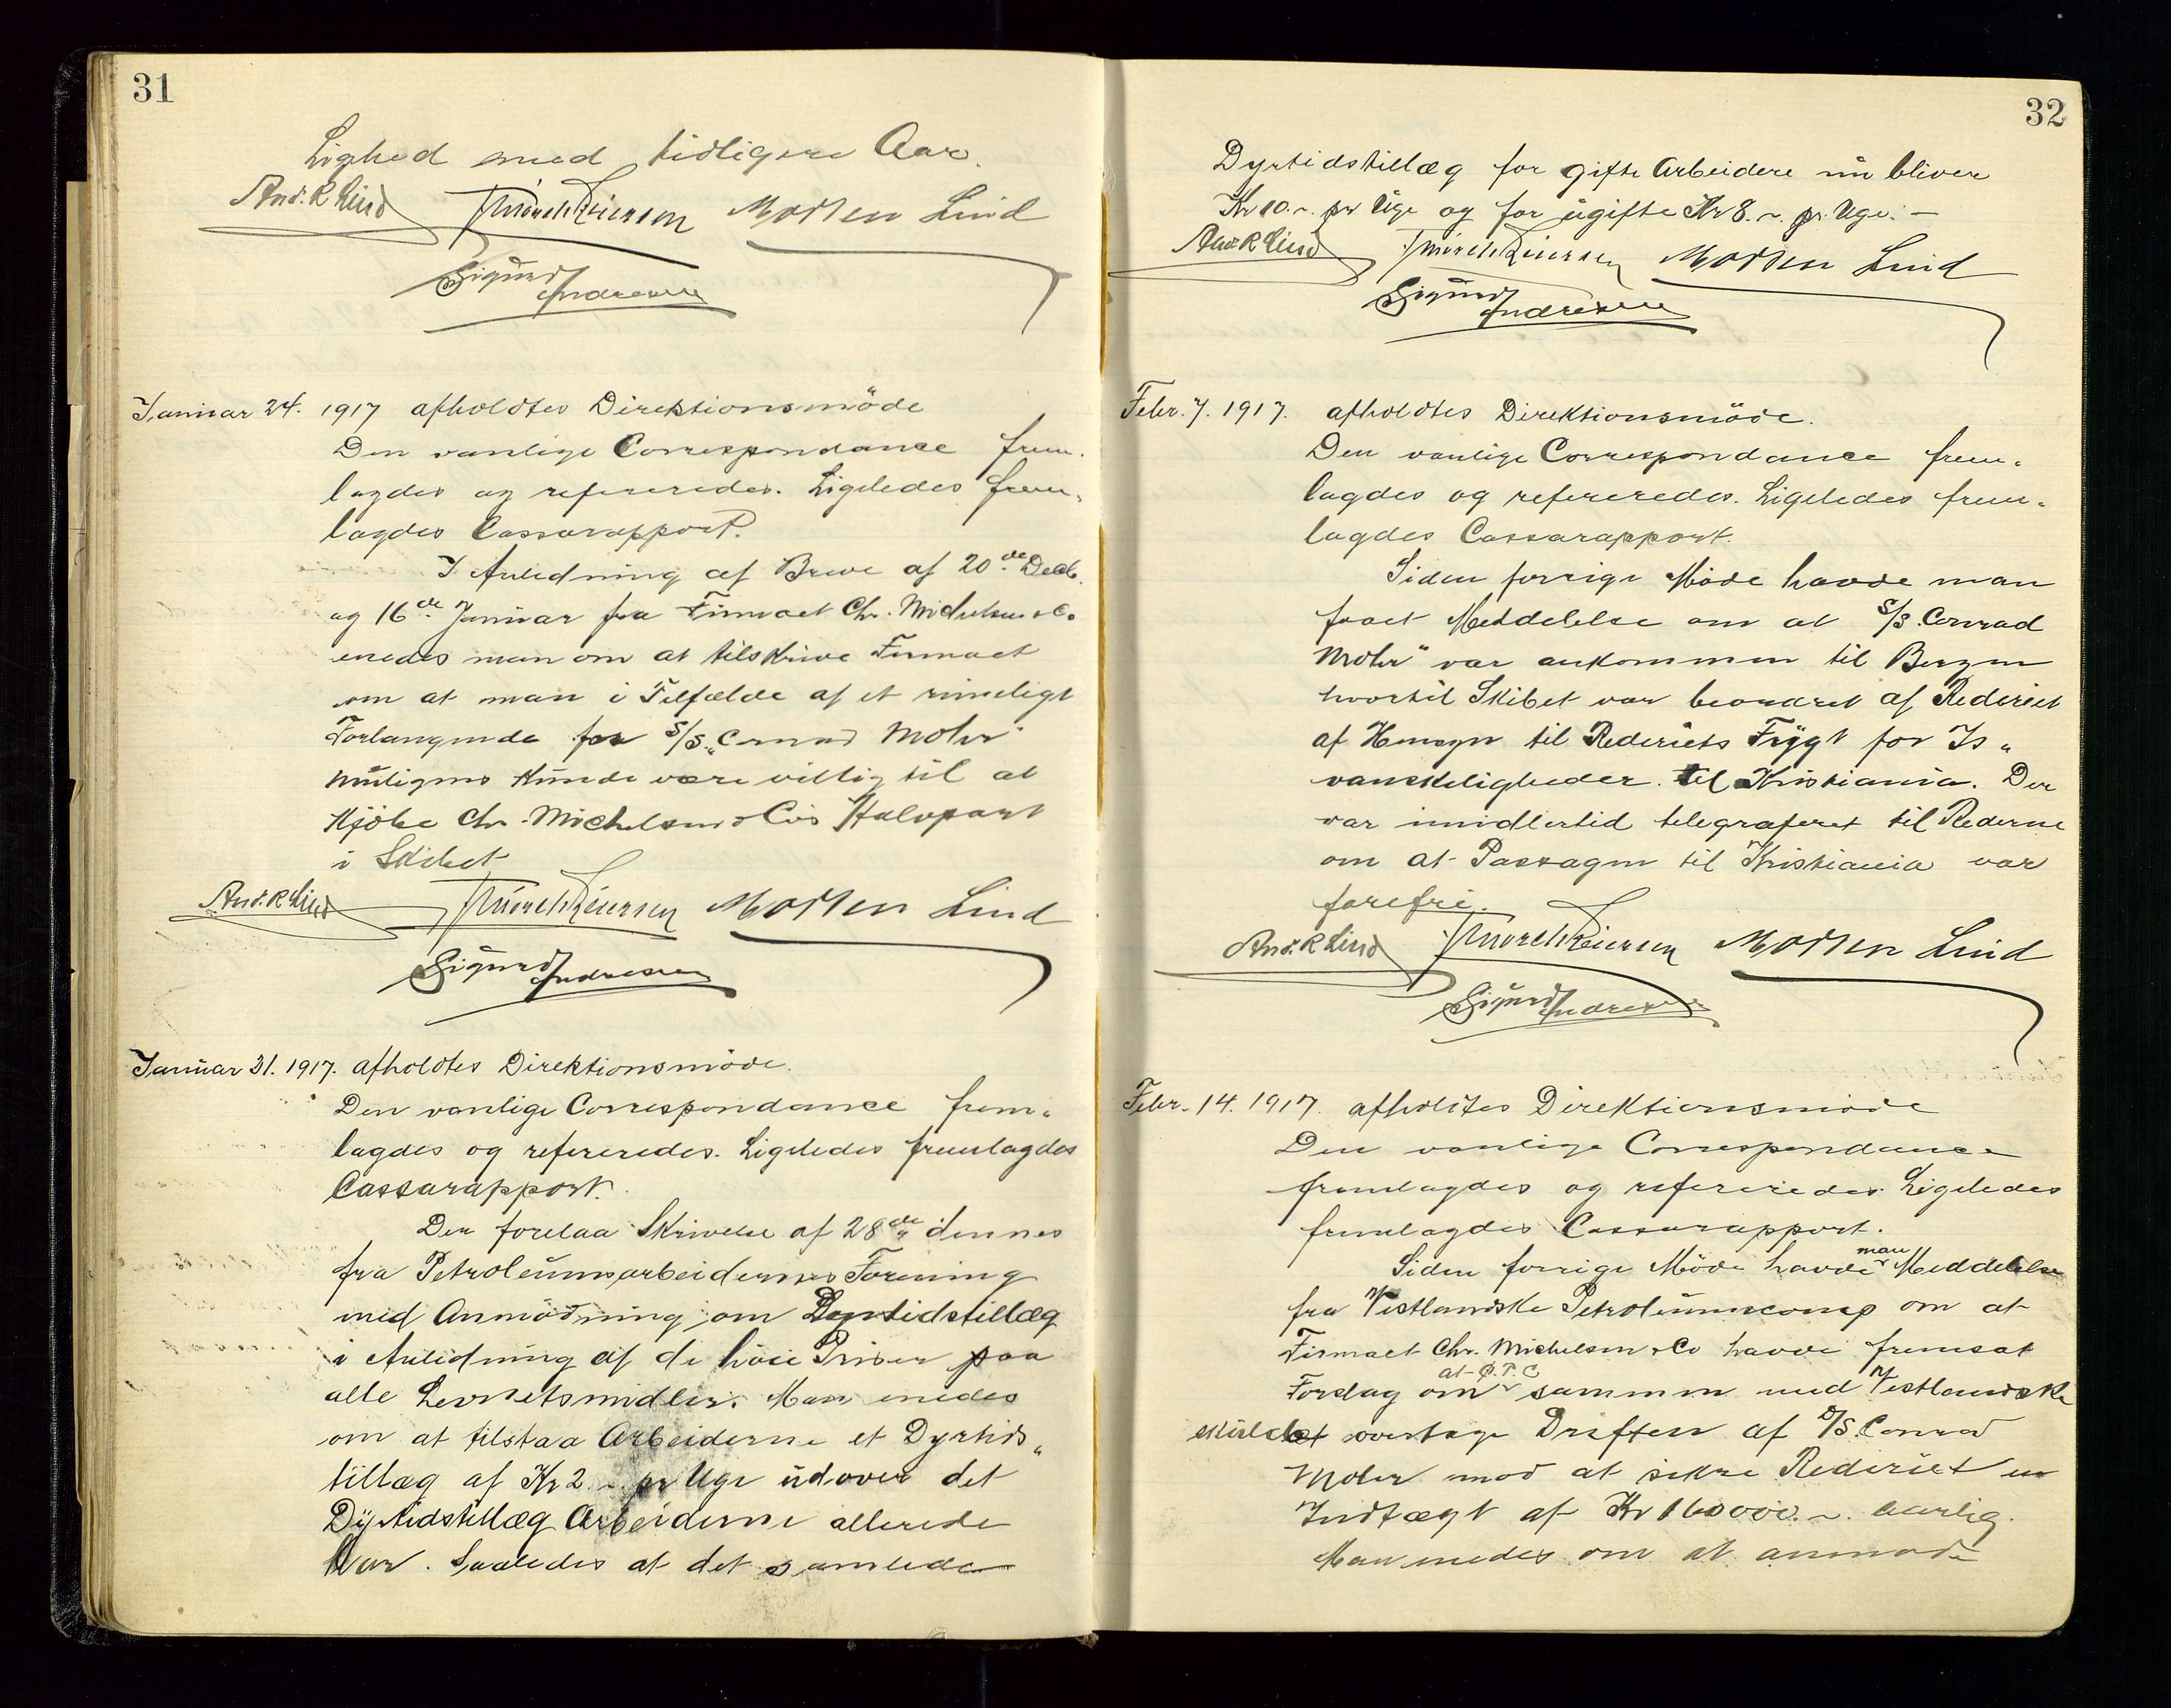 31
Lighed med tidligere Aar.
And. R Lind Thorch Reiersen Morten Lind
Sigurd Andresen
Januar 24. 1917 afholdtes Direktionsmöde
Den vanlige Correspondance frem-
lagdes og refereredes. Ligeledes frem-
lagdes Cassarapport.
I Anledning af Breve af 20de Decb.
og 16de Januar fra Firmaet Chr. Michelsen & Co
enedes man om at tilskrive Firmaet
om at man i Tilfælde af et rimeligt
Forlangende for S/S "Conrad Mohr"
muligens kunde være villig til at
kjöbe Chr. Michelsen & Co's Halvpart
i Skibet
And. R Lind Thorch Reiersen Morten Lind
Sigurd Andresen
Januar 31. 1917. afholdtes Direktionsmöde.
Den vanlige Correspondance frem-
lagdes og refereredes. Ligeledes fremlagdes
Cassarapport.
Der forelaa Skrivelse af 28de dennes
fra Petroleumsarbeidernes Forening
med Anmodning om Dyrtidstillæg
i Anledning af de höie Priser paa
alle Levnetsmidler. Man enedes
om at tilstaa Arbeiderne et Dyrtids-
tillæg af Kr 2.- pr Uge udover det
Dyrtidstillæg Arbeiderne allerede
har. Saaledes at det samlede
32
Dyrtidstillæg for gifte Arbeidere nu bliver
Kr 10.- pr Uge og for ugifte Kr 8.- pr. Uge. -
And. R Lind Thorch Reiersen Morten Lind
Sigurd Andresen
Febr. 7. 1917. afholdtes Direktionsmöde.
Den vanlige Correspondance frem-
lagdes og refereredes. Ligeledes frem-
lagdes Cassarapport.
Siden forrige Möde havde man
faaet Meddelelse om at S/S. Conrad
Mohr" var ankommen til Bergen
hvortil Skibet var beordret af Rederiet
af Hensyn til Rederiets Frygt for Is-
vanskeligheder til Kristiania. Der
var imidlertid telegraferet til Rederne
om at Passagen til Kristiania var
farefri.
And. R Lind Thorch Reiersen Morten Lind
Sigurd Andresen
Febr. 14. 1917. afholdtes Direktionsmöde
Den vanlige Correspondance
fremlagdes og refereredes. Ligeledes
fremlagdes Cassarapport.
Siden forrige Möde havde man Meddelelse
fra Vestlandske Petroleumscomp om at
Firmaet Chr. Michelsen & Co havde fremsat
Forslag om at Ö.P.C sammen med Vestlandske
skulde overtage Driften af S/S. Conrad
Mohr mod at sikre Rederiet en
Indtægt af Kr 160000.- aarlig.
Man enedes om at anmode